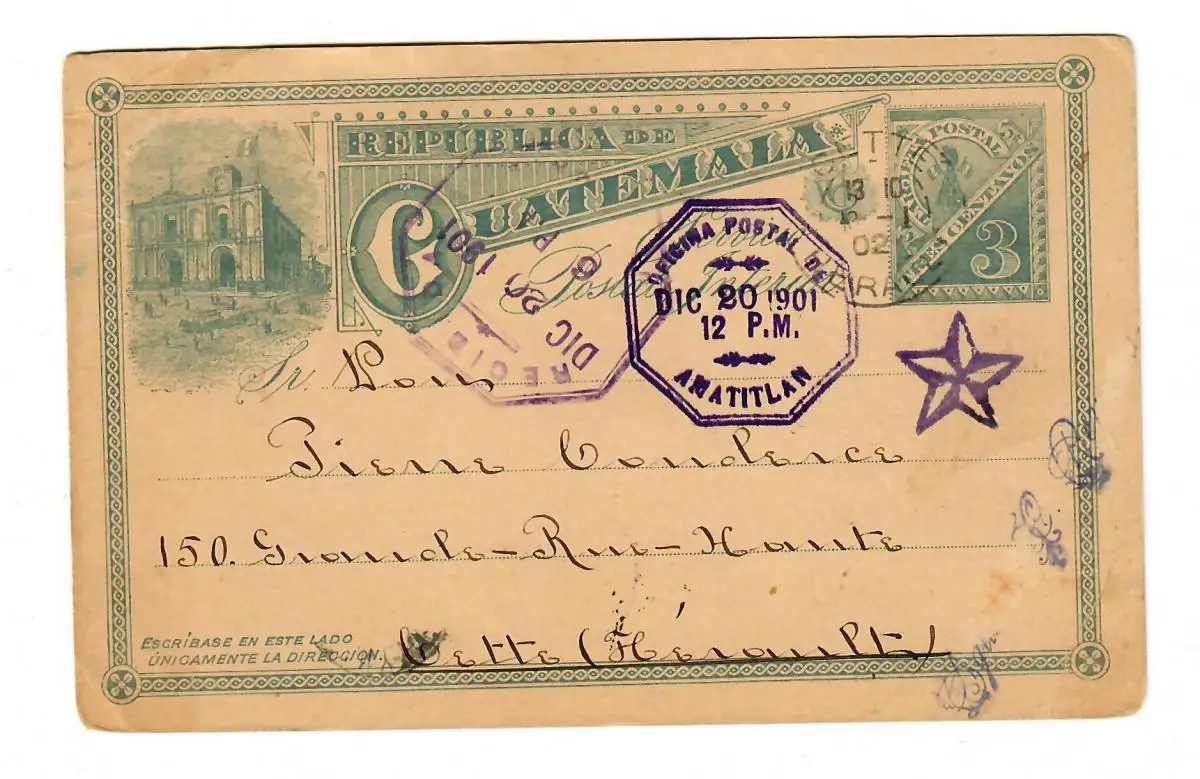 REPÚBLICA DE
GUATEMALA
TARGETA POSTAL
TRES CENTAVOS
3
Servicio
Postal Interior
OFICINA POSTAL DE
DIC 20 1901
12 P.M.
AMATITLAN
DIC 20 1901
6
13 10
02
Sr. Pour
Pierre Conderce
150. Grande-Rue-Haute
Cette (Hérault)
ESCRÍBASE EN ESTE LADO
ÚNICAMENTE LA DIRECCION.